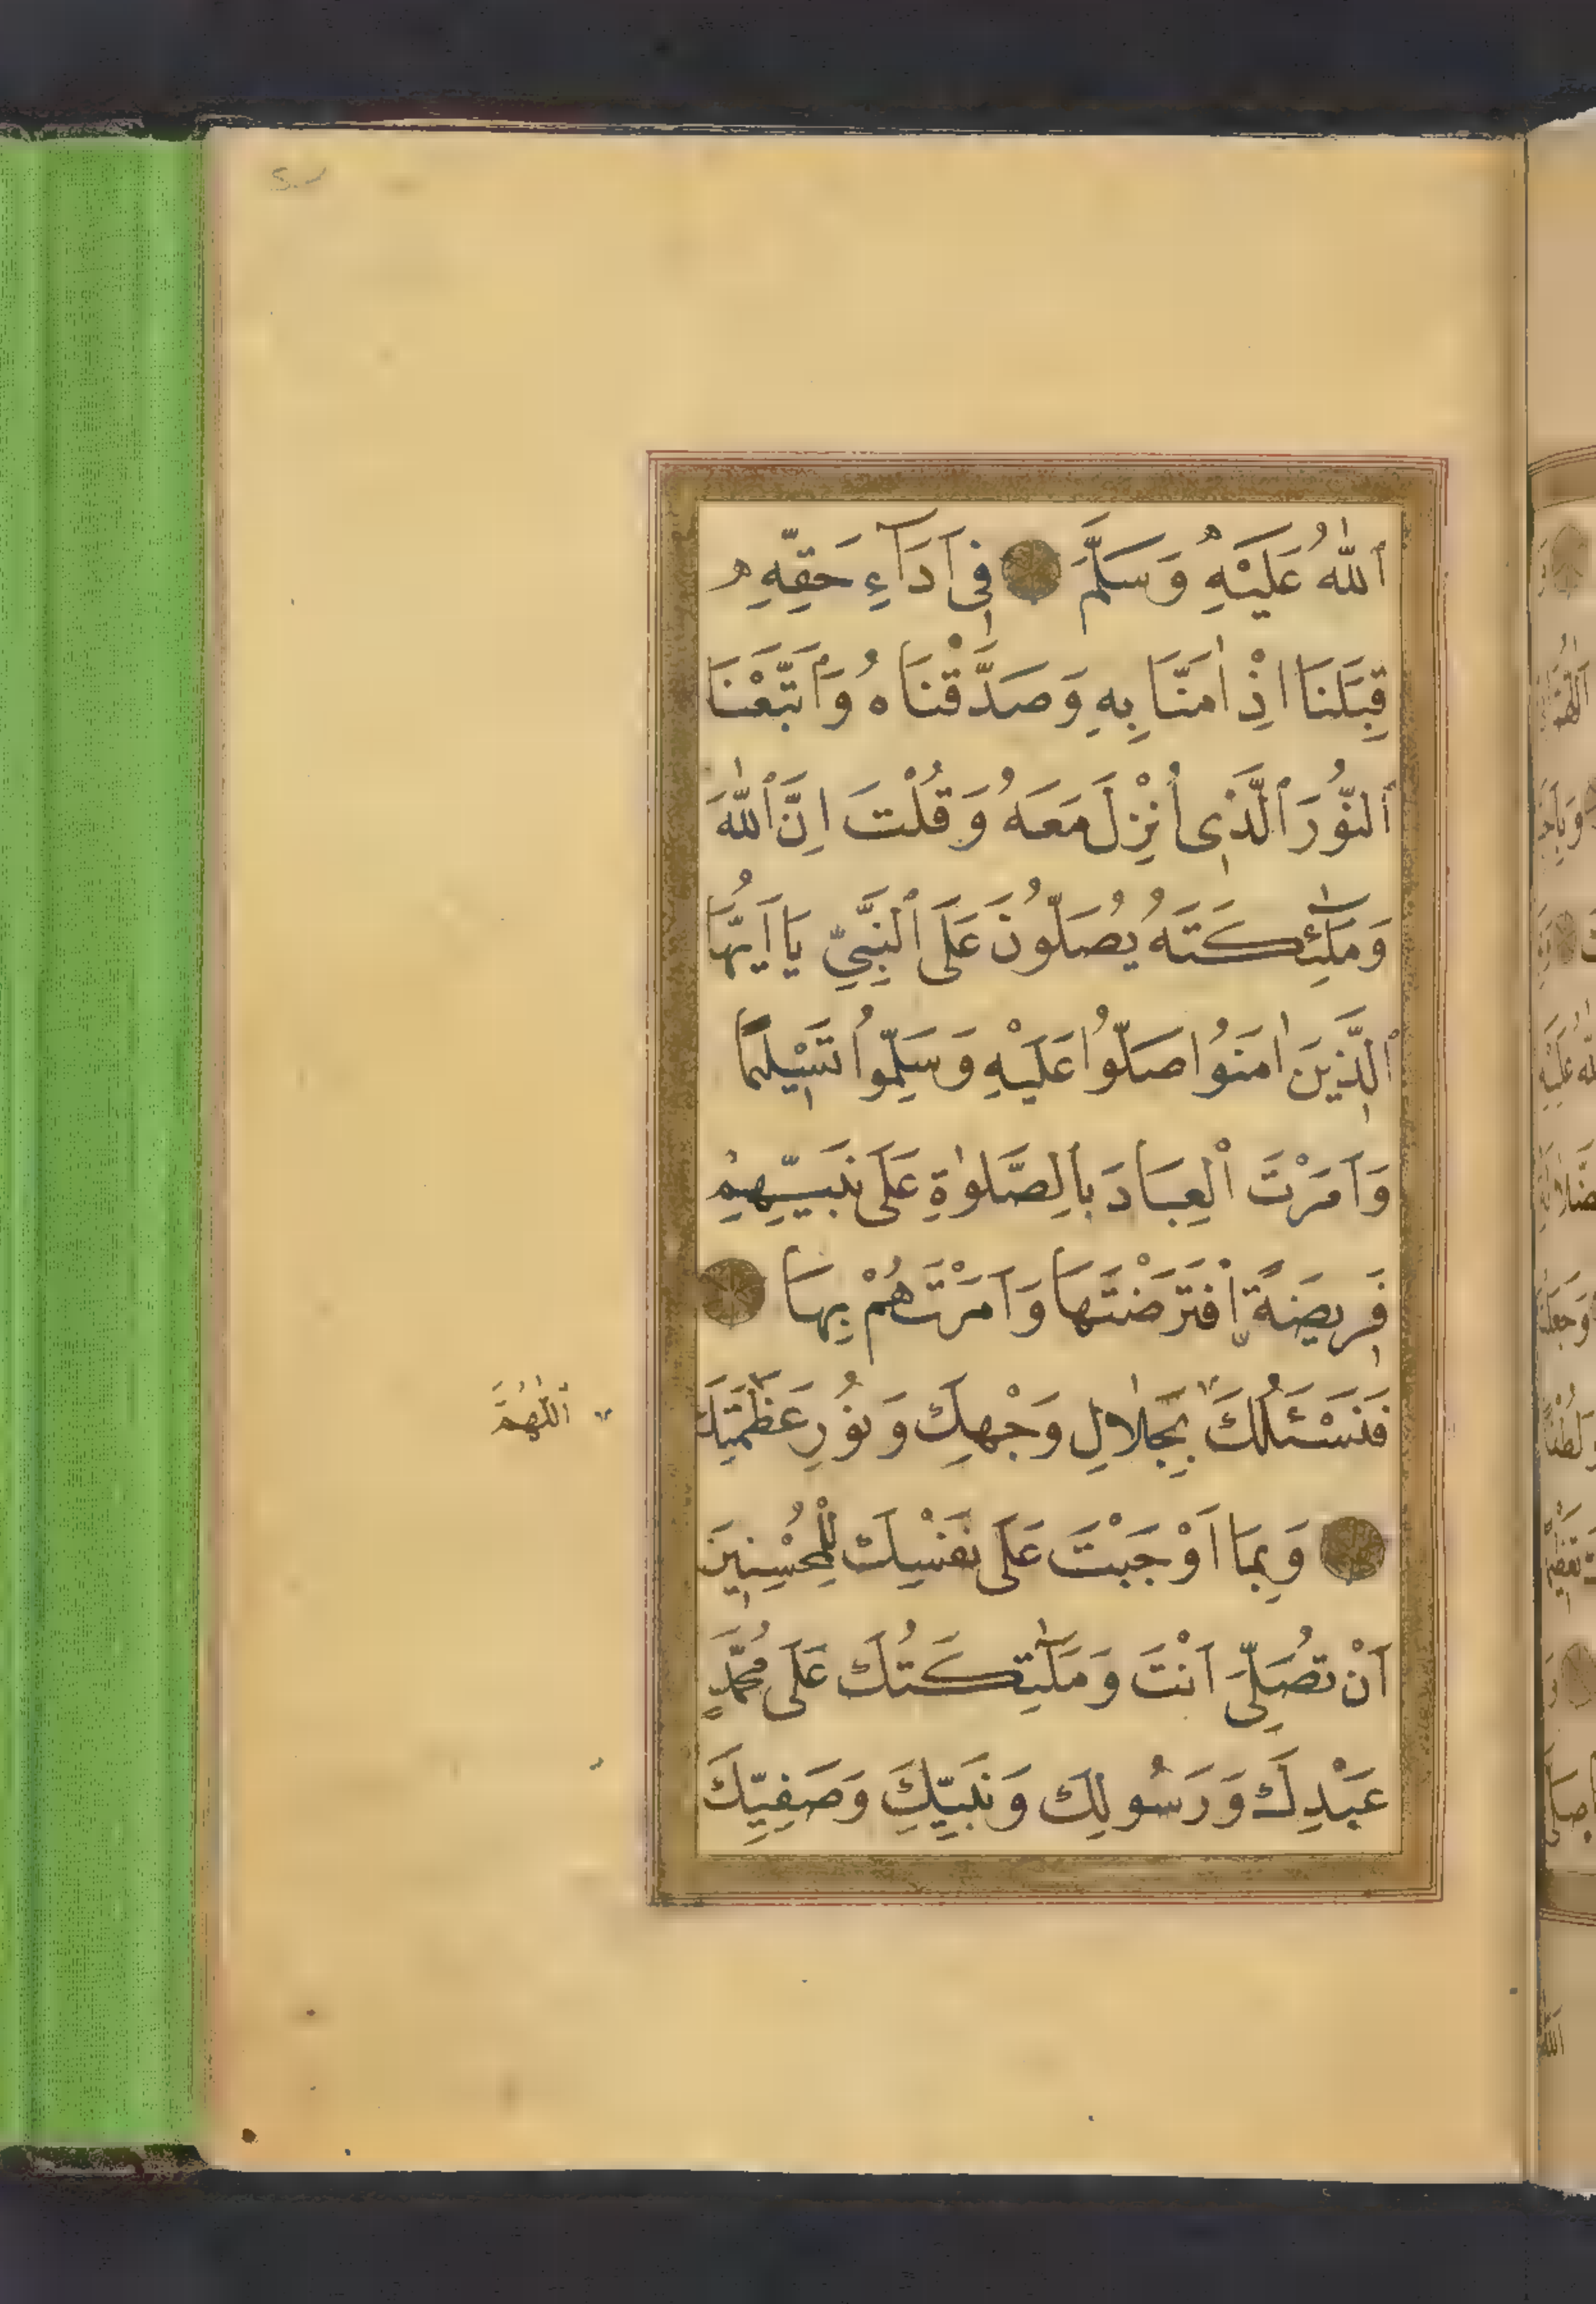 ٱللّٰهُ عَلَيْهِ وَسَلَّمَ فِى اَدَآءِ حَقِّهِ
قِبَلَنَا اِذْ اٰمَنَّا بِهِ وَصَدَّقْنَاهُ وَٱتَّبَعْنَا
ٱلنُّورَ ٱلَّذِى اُنْزِلَ مَعَهُ وَقُلْتَ اِنَّ ٱللّٰهَ
وَمَلٰٓئِكَتَهُ يُصَلُّونَ عَلَى ٱلنَّبِىِّ يَا اَيُّهَا
ٱلَّذِينَ اٰمَنُوا صَلُّوا عَلَيْهِ وَسَلِّمُوا تَسْلِيمًا
وَاَمَرْتَ ٱلْعِبَادَ بِالصَّلٰوةِ عَلَى نَبِيِّهِمْ
فَرِيضَةً اِفْتَرَضْتَهَا وَاَمَرْتَهُمْ بِهَا
فَنَسْئَلُكَ بِجَلَالِ وَجْهِكَ وَنُورِ عَظَمَتِكَ
اَللّٰهُمَّ
وَبِمَا اَوْجَبْتَ عَلَى نَفْسِكَ لِلْمُحْسِنِينَ
اَنْ تُصَلِّىَ اَنْتَ وَمَلٰٓئِكَتُكَ عَلَى مُحَمَّدٍ
عَبْدِكَ وَرَسُولِكَ وَنَبِيِّكَ وَصَفِيِّكَ